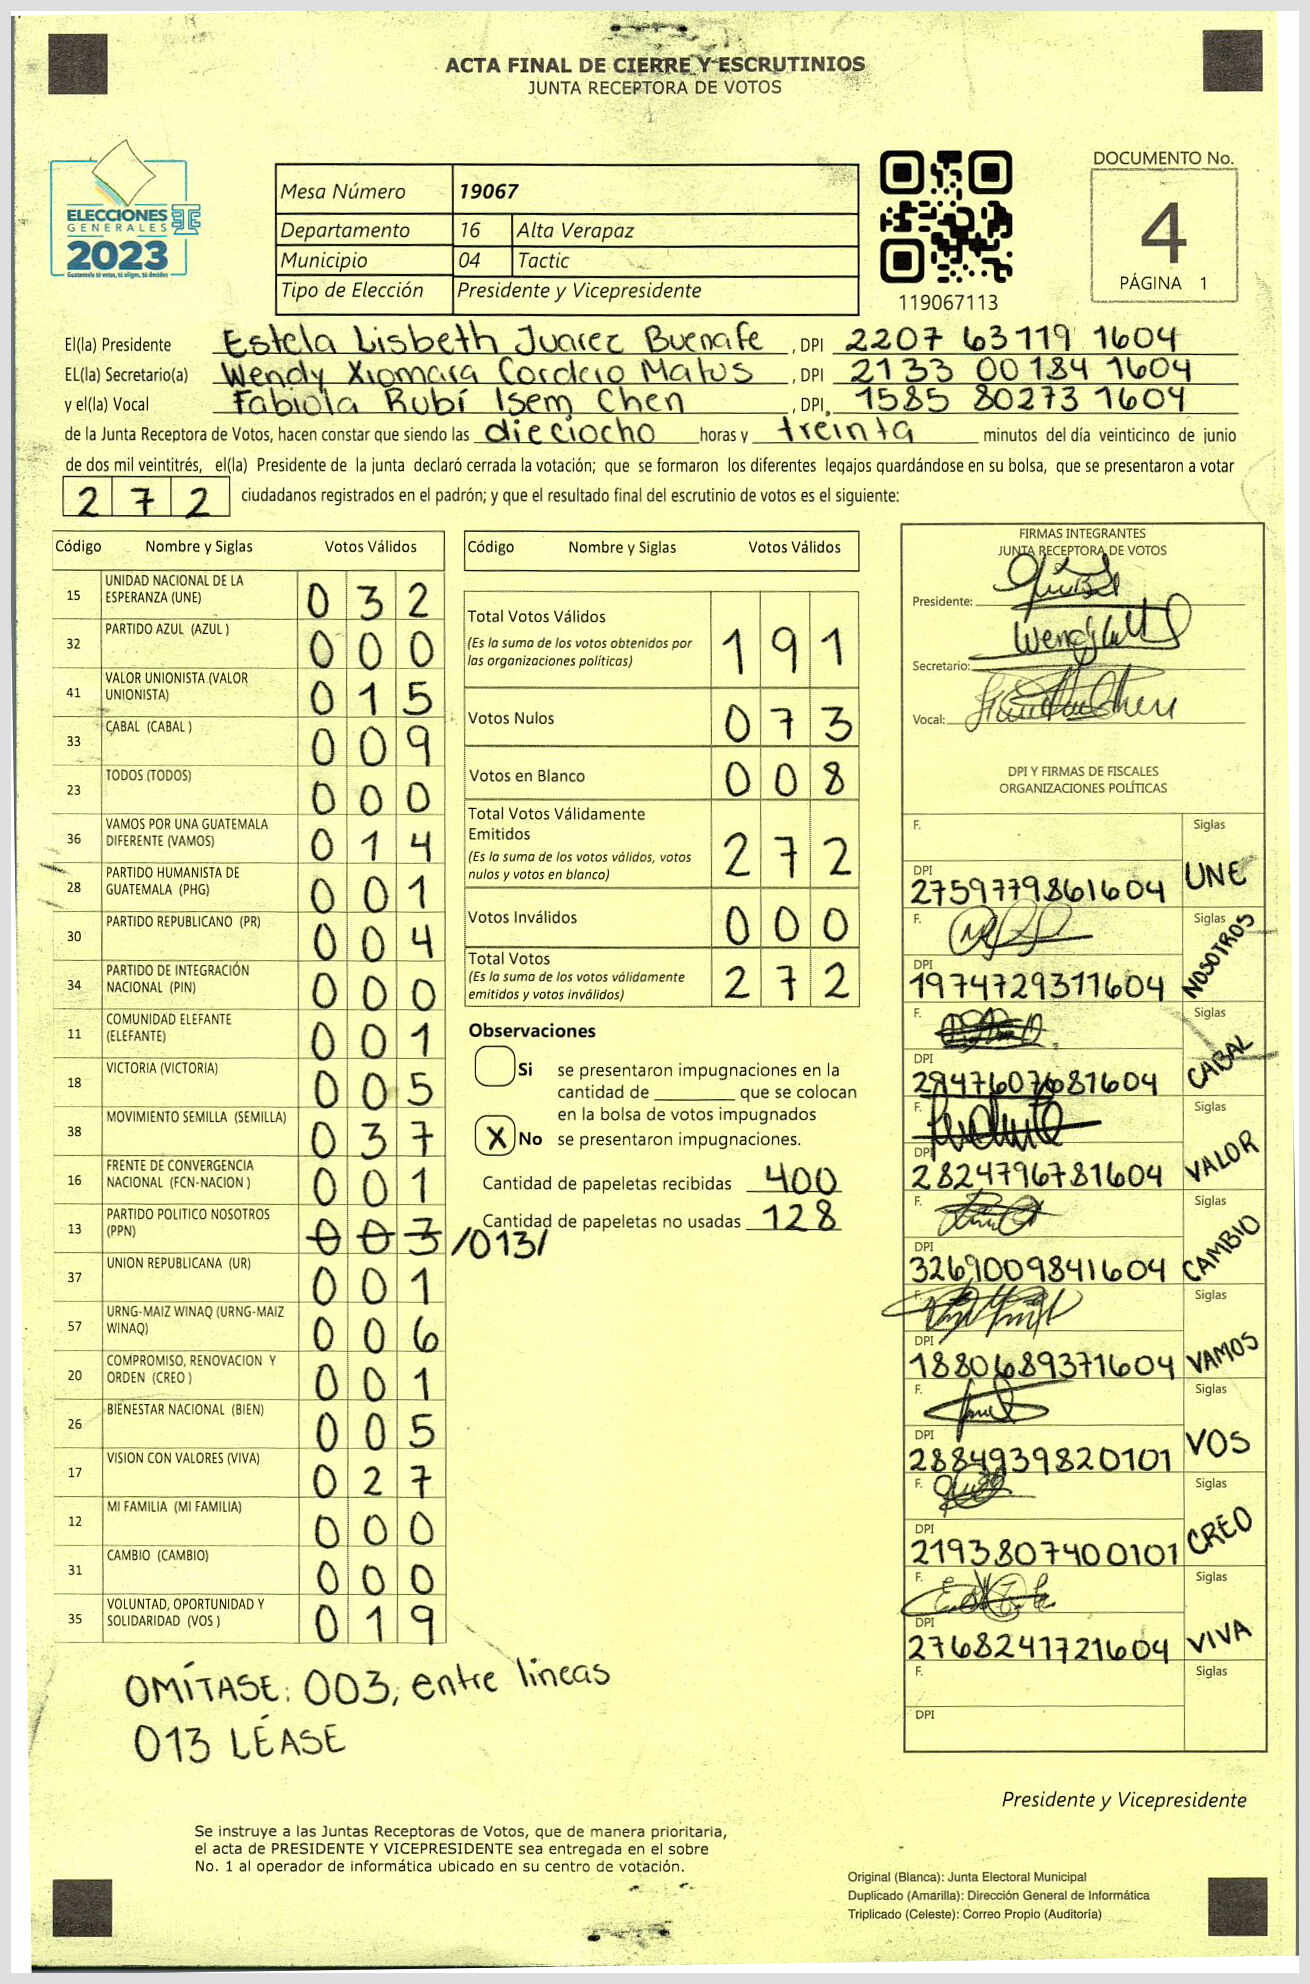 ACTA FINAL DE CIERRE Y ESCRUTINIOS
JUNTA RECEPTORA DE VOTOS
ELECCIONES
GENERALES
2023
Guatemala tú votas, tú eliges, tú decides
Mesa Número 19067
Departamento 16 Alta Verapaz
Municipio 04 Tactic
Tipo de Elección Presidente y Vicepresidente
119067113
DOCUMENTO No.
4
PÁGINA 1
El(la) Presidente Estela Lisbeth Juarez Buenafe , DPI 2207 63119 1604
EL(la) Secretario(a) Wendy Xiomara Cordero Matus , DPI 2133 00184 1604
y el(la) Vocal Fabiola Rubí Isem Chen , DPI. 1585 80273 1604
de la Junta Receptora de Votos, hacen constar que siendo las dieciocho horas y treinta minutos del día veinticinco de junio
de dos mil veintitrés, el(la) Presidente de la junta declaró cerrada la votación; que se formaron los diferentes legajos guardándose en su bolsa, que se presentaron a votar
272 ciudadanos registrados en el padrón; y que el resultado final del escrutinio de votos es el siguiente:
Código Nombre y Siglas Votos Válidos
15 UNIDAD NACIONAL DE LA ESPERANZA (UNE) 032
32 PARTIDO AZUL (AZUL ) 000
41 VALOR UNIONISTA (VALOR UNIONISTA) 015
33 CABAL (CABAL ) 009
23 TODOS (TODOS) 000
36 VAMOS POR UNA GUATEMALA DIFERENTE (VAMOS) 014
28 PARTIDO HUMANISTA DE GUATEMALA (PHG) 001
30 PARTIDO REPUBLICANO (PR) 004
34 PARTIDO DE INTEGRACIÓN NACIONAL (PIN) 000
11 COMUNIDAD ELEFANTE (ELEFANTE) 001
18 VICTORIA (VICTORIA) 005
38 MOVIMIENTO SEMILLA (SEMILLA) 037
16 FRENTE DE CONVERGENCIA NACIONAL (FCN-NACION ) 001
13 PARTIDO POLITICO NOSOTROS (PPN) 003 /013/
37 UNION REPUBLICANA (UR) 001
57 URNG-MAIZ WINAQ (URNG-MAIZ WINAQ) 006
20 COMPROMISO, RENOVACION Y ORDEN (CREO ) 001
26 BIENESTAR NACIONAL (BIEN) 005
17 VISION CON VALORES (VIVA) 027
12 MI FAMILIA (MI FAMILIA) 000
31 CAMBIO (CAMBIO) 000
35 VOLUNTAD, OPORTUNIDAD Y SOLIDARIDAD (VOS ) 019
OMÍTASE: 003, entre líneas
013 LÉASE
Código Nombre y Siglas Votos Válidos
Total Votos Válidos 191
(Es la suma de los votos obtenidos por
las organizaciones políticas)
Votos Nulos 073
Votos en Blanco 008
Total Votos Válidamente
Emitidos 272
(Es la suma de los votos válidos, votos
nulos y votos en blanco)
Votos Inválidos 000
Total Votos 272
(Es la suma de los votos válidamente
emitidos y votos inválidos)
Observaciones
Si se presentaron impugnaciones en la
cantidad de ________ que se colocan
en la bolsa de votos impugnados
X No se presentaron impugnaciones.
Cantidad de papeletas recibidas 400
Cantidad de papeletas no usadas 128
FIRMAS INTEGRANTES
JUNTA RECEPTORA DE VOTOS
Presidente:
Secretario:
Vocal:
DPI Y FIRMAS DE FISCALES
ORGANIZACIONES POLÍTICAS
F. Siglas
DPI 2759779861604 UNE
F. Siglas
DPI 1974729311604 NOSOTROS
F. Siglas
DPI 2947607681604 CABAL
F. Siglas
DPI 2824796781604 VALOR
F. Siglas
DPI 3269009841604 CAMBIO
F. Siglas
DPI 1880689371604 VAMOS
F. Siglas
DPI 2884939820101 VOS
F. Siglas
DPI 2193807400101 CREO
F. Siglas
DPI 2768241721604 VIVA
F. Siglas
DPI
Presidente y Vicepresidente
Se instruye a las Juntas Receptoras de Votos, que de manera prioritaria,
el acta de PRESIDENTE Y VICEPRESIDENTE sea entregada en el sobre
No. 1 al operador de informática ubicado en su centro de votación.
Original (Blanca): Junta Electoral Municipal
Duplicado (Amarilla): Dirección General de Informática
Triplicado (Celeste): Correo Propio (Auditoria)